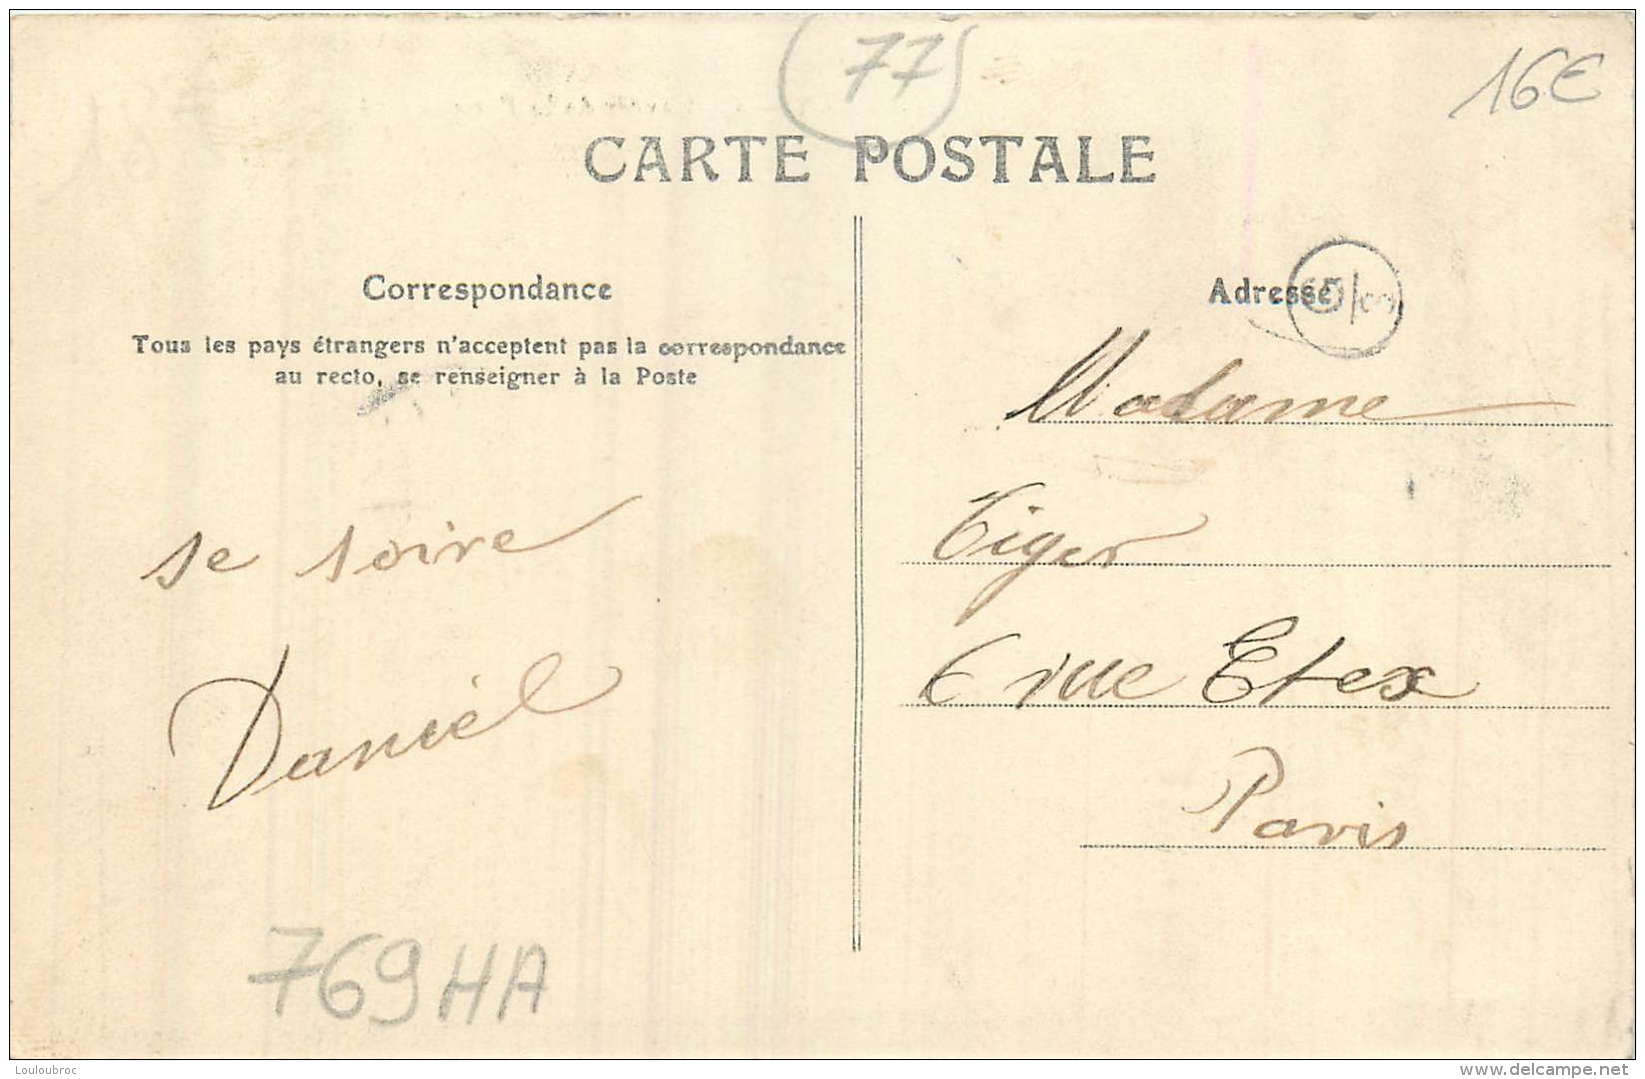 77
16€
CARTE POSTALE
Correspondance
Tous les pays étrangers n'acceptent pas la correspondance
au recto, se renseigner à la Poste
se soire
Daniel
769HA
Adresse
Madame
Tiger
6 rue Etex
Paris
Louloubroc
delcampe.net